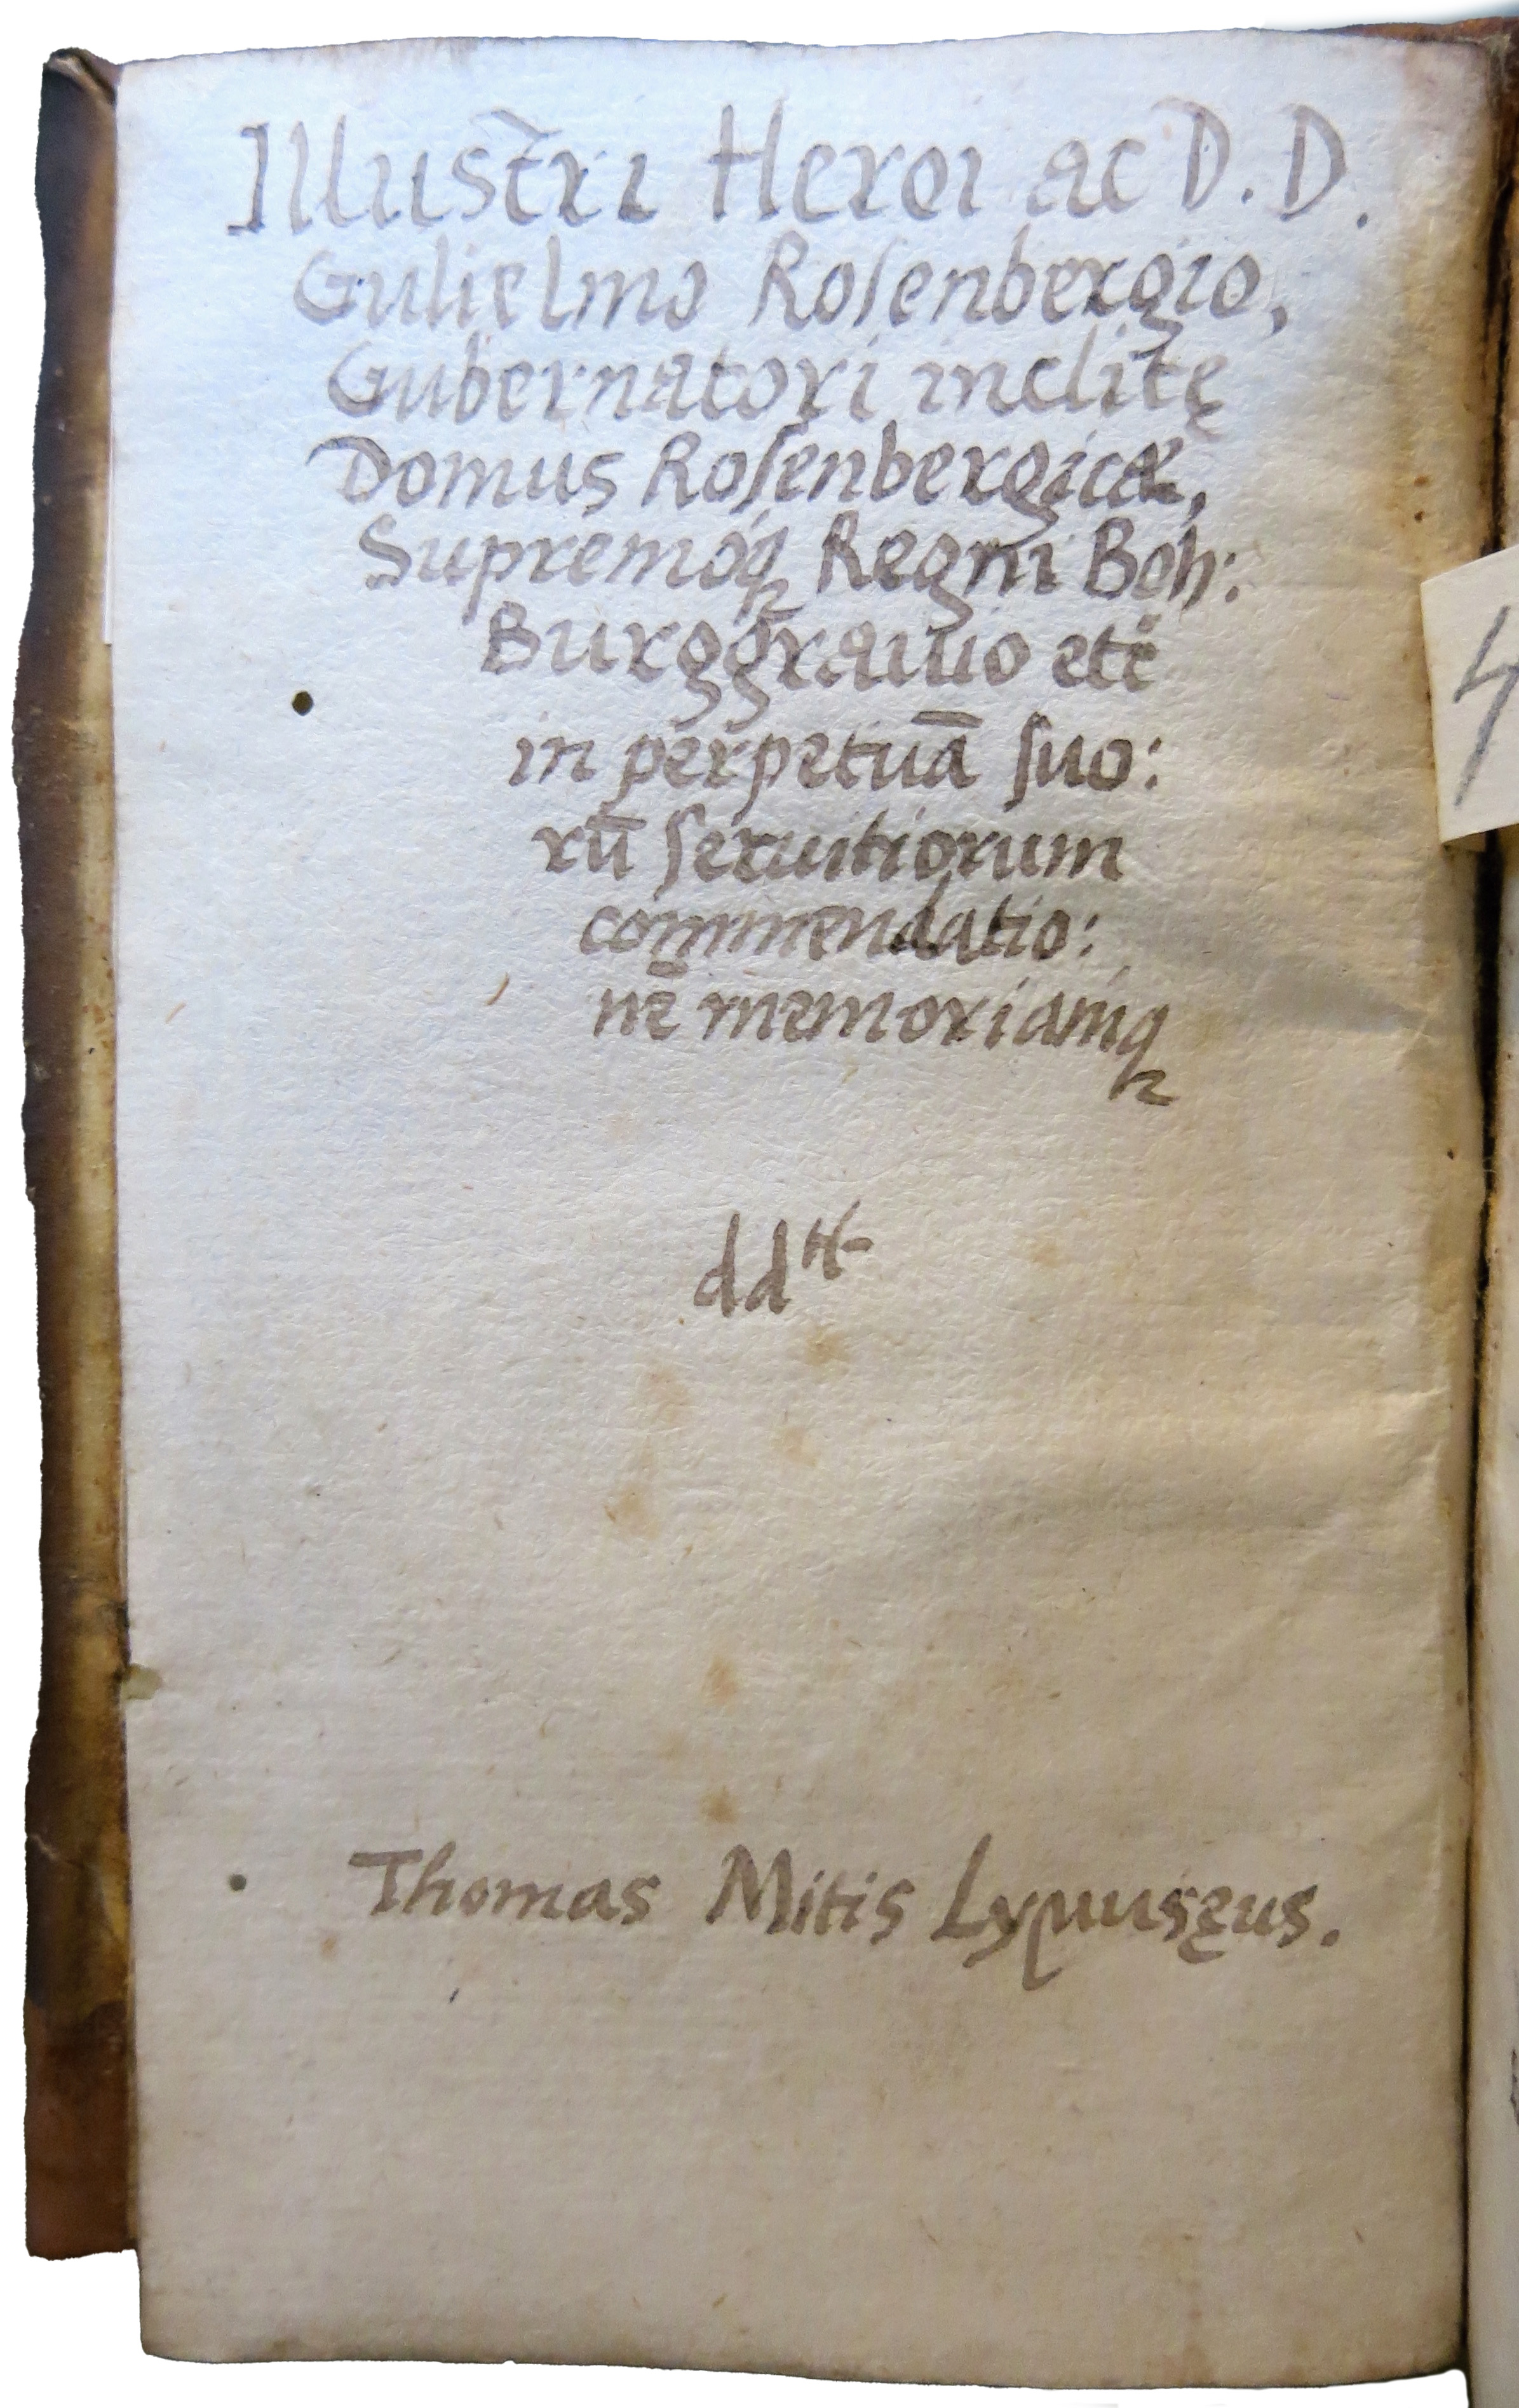 Illustri Heroi ac D. D.
Gulielmo Roſenbergio,
Gubernatori inclitę
Domus Roſenbergicæ,
Supremóq Regni Boh:
Burggrauio etc̈
in perpetuā ſuo:
rū ſeruitiorum
commendatio:
nē memoriamq
dd
Thomas Mitis
4